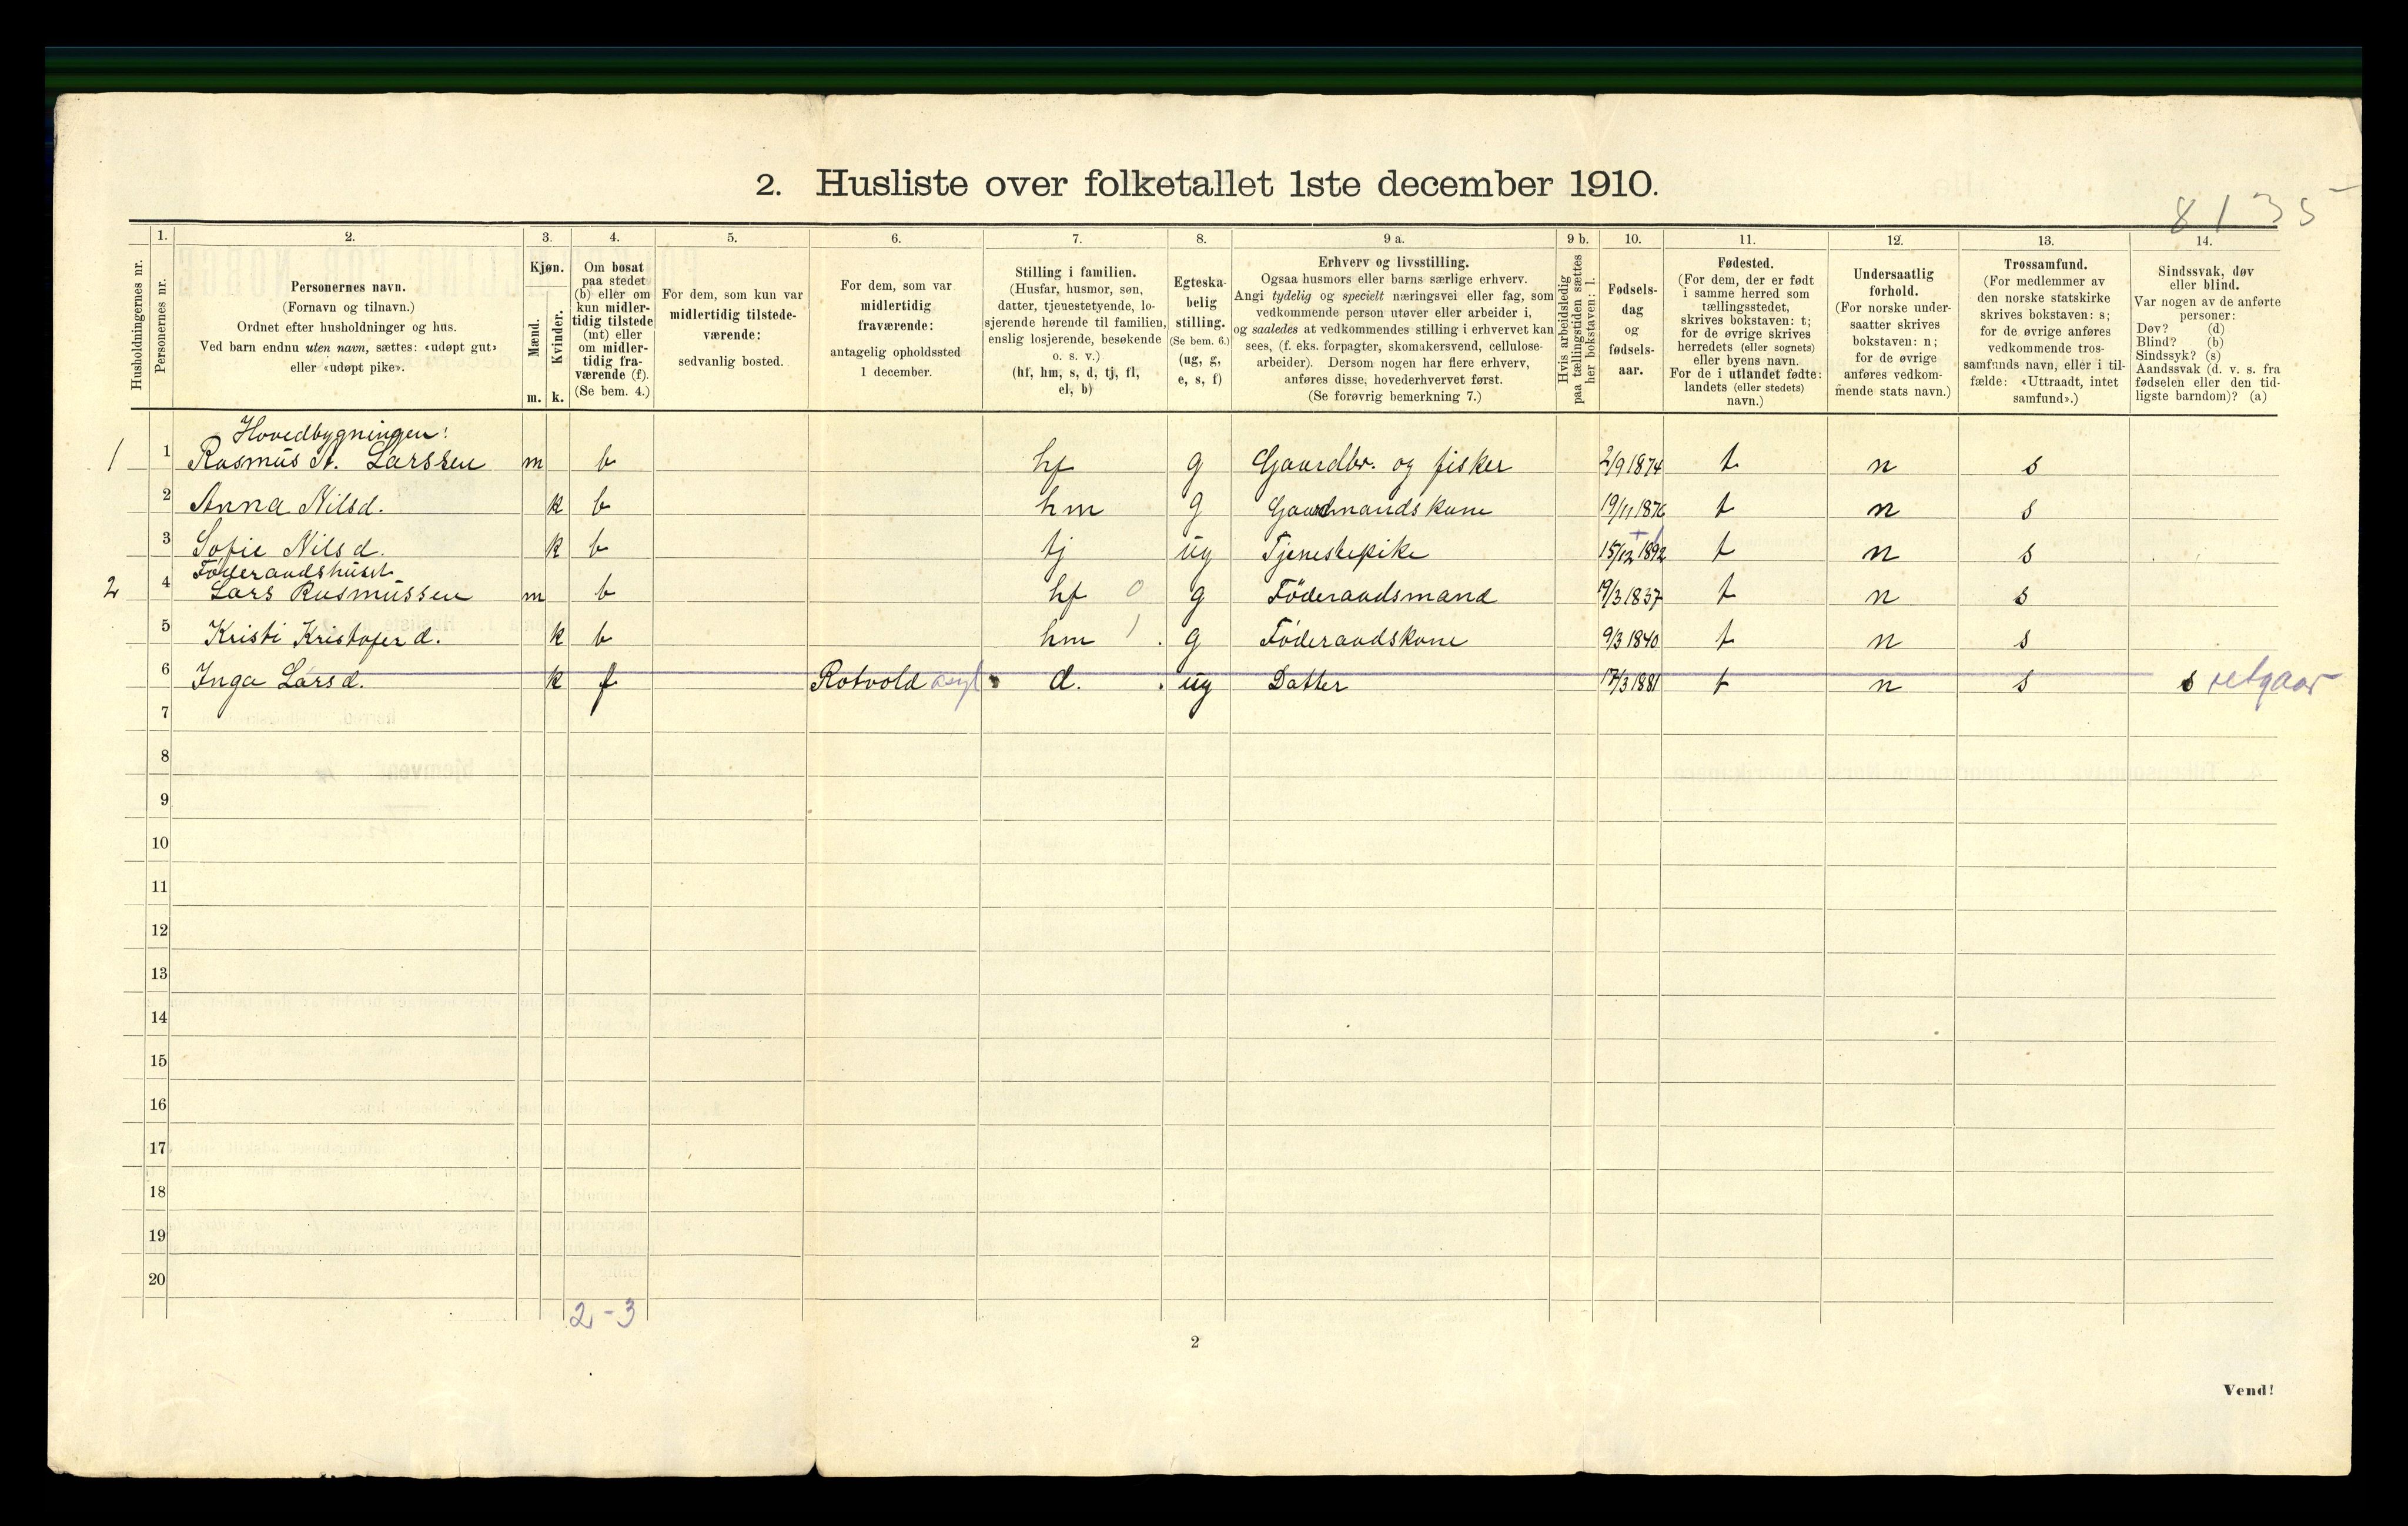 2. Husliste over folketallet 1ste december 1910.
8135
Husholdningernes nr.
1.
Personernes nr.
2.
Personernes navn.
(Fornavn og tilnavn.)
Ordnet efter husholdninger og hus.
Ved barn endnu uten navn, sættes: «udøpt gut»
eller «udøpt pike».
3.
Kjøn.
Mænd.
Kvinder.
m. k.
4.
Om bosat
paa stedet
(b) eller om
kun midler-
tidig tilstede
(mt) eller
om midler-
tidig fra-
værende (f).
(Se bem. 4.)
5.
For dem, som kun var
midlertidig tilstede-
værende:
sedvanlig bosted.
6.
For dem, som var
midlertidig
fraværende:
antagelig opholdssted
1 december.
7.
Stilling i familien.
(Husfar, husmor, søn,
datter, tjenestetyende, lo-
sjerende hørende til familien,
enslig losjerende, besøkende
o. s. v.)
(hf, hm, s, d, tj, fl,
el, b)
8.
Egteska-
belig
stilling.
(Se bem. 6.)
(ug, g,
e, s, f)
9 a.
Erhverv og livsstilling.
Ogsaa husmors eller barns særlige erhverv.
Angi tydelig og specielt næringsvei eller fag, som
vedkommende person utøver eller arbeider i,
og saaledes at vedkommendes stilling i erhvervet kan
sees, (f. eks. forpagter, skomakersvend, cellulose-
arbeider). Dersom nogen har flere erhverv,
anføres disse, hovederhvervet først.
(Se forøvrig bemerkning 7.)
9 b.
Hvis arbeidsledig
paa tællingstiden sættes
her bokstaven: l.
10.
Fødsels-
dag
og
fødsels-
aar.
11.
Fødested.
(For dem, der er født
i samme herred som
tællingsstedet,
skrives bokstaven: t;
for de øvrige skrives
herredets (eller sognets)
eller byens navn.
For de i utlandet fødte:
landets (eller stedets)
navn.)
12.
Undersaatlig
forhold.
(For norske under-
saatter skrives
bokstaven: n;
for de øvrige
anføres vedkom-
mende stats navn.)
13.
Trossamfund.
(For medlemmer av
den norske statskirke
skrives bokstaven: s;
for de øvrige anføres
vedkommende tros-
samfunds navn, eller i til-
fælde: «Uttraadt, intet
samfund».)
14.
Sindssvak, døv
eller blind.
Var nogen av de anførte
personer:
Døv? (d)
Blind? (b)
Sindssyk? (s)
Aandssvak (d. v. s. fra
fødselen eller den tid-
ligste barndom)? (a)
Hovedbygningen:
1 1 Rasmus A. Larssen m b hf g Gaardbr. og fisker 2/9 1874 t n s
2 Anna Nilsd. k b hm g Gaardmandskone 19/11 1876 t n s
3 Sofie Nilsd. k b tj ug Tjenestepike 15/12 1892 t n s
Föderaadshuset
2 4 Lars Rasmussen m b hf 0 g Föderaadsmand 19/3 1837 t n s
5 Kristi Kristoferd. k b hm 1 g Föderaadskone 9/3 1840 t n s
6 Inga Larsd. k f Rotvold asyl d. ug Datter 17/3 1881 t n s s
7
8
9
10
11
12
13
14
15
16
17
18
19
20
2-3
2
Vend!